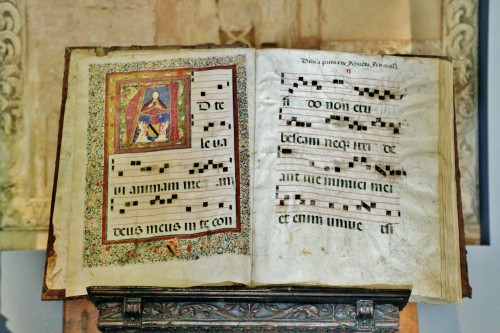 A
D te
leva
vi animam me am
deus meus in te con
Dnica prima
fi do non eru
bescam neq irri de
ant me inimici mei
et enim unive rsi